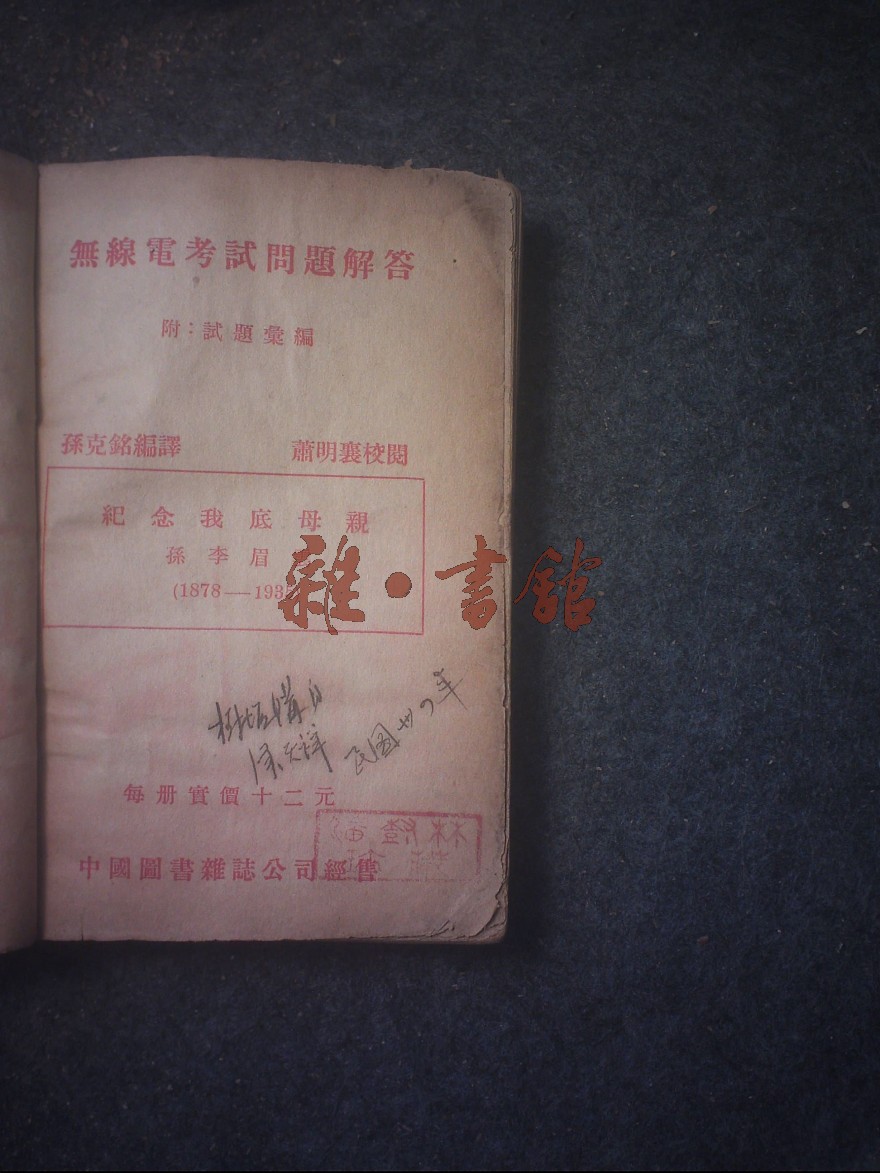 無線電考試問題解答
附：試題彙編
孫克銘編譯 蕭明襄校閱
紀念我底母親
孫李眉
(1878—193
雜·書館
民國卅四年
每册實價十二元
中國圖書雜誌公司經售